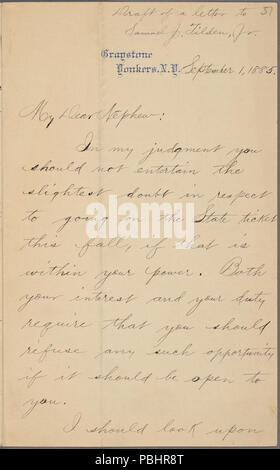 Draft of a letter to
Samuel J. Tilden, Jr.
Graystone
Yonkers, N.Y. September 1, 1885.
My Dear Nephew:
In my judgment you
should not entertain the
slightest doubt in respect
to going on the State ticket
this fall, if that is
within your power. Both
your interest and your duty
require that you should
refuse any such opportunity
if it should be open to
you.
I should look upon
alamy
Image ID: PBHR8T
www.alamy.com